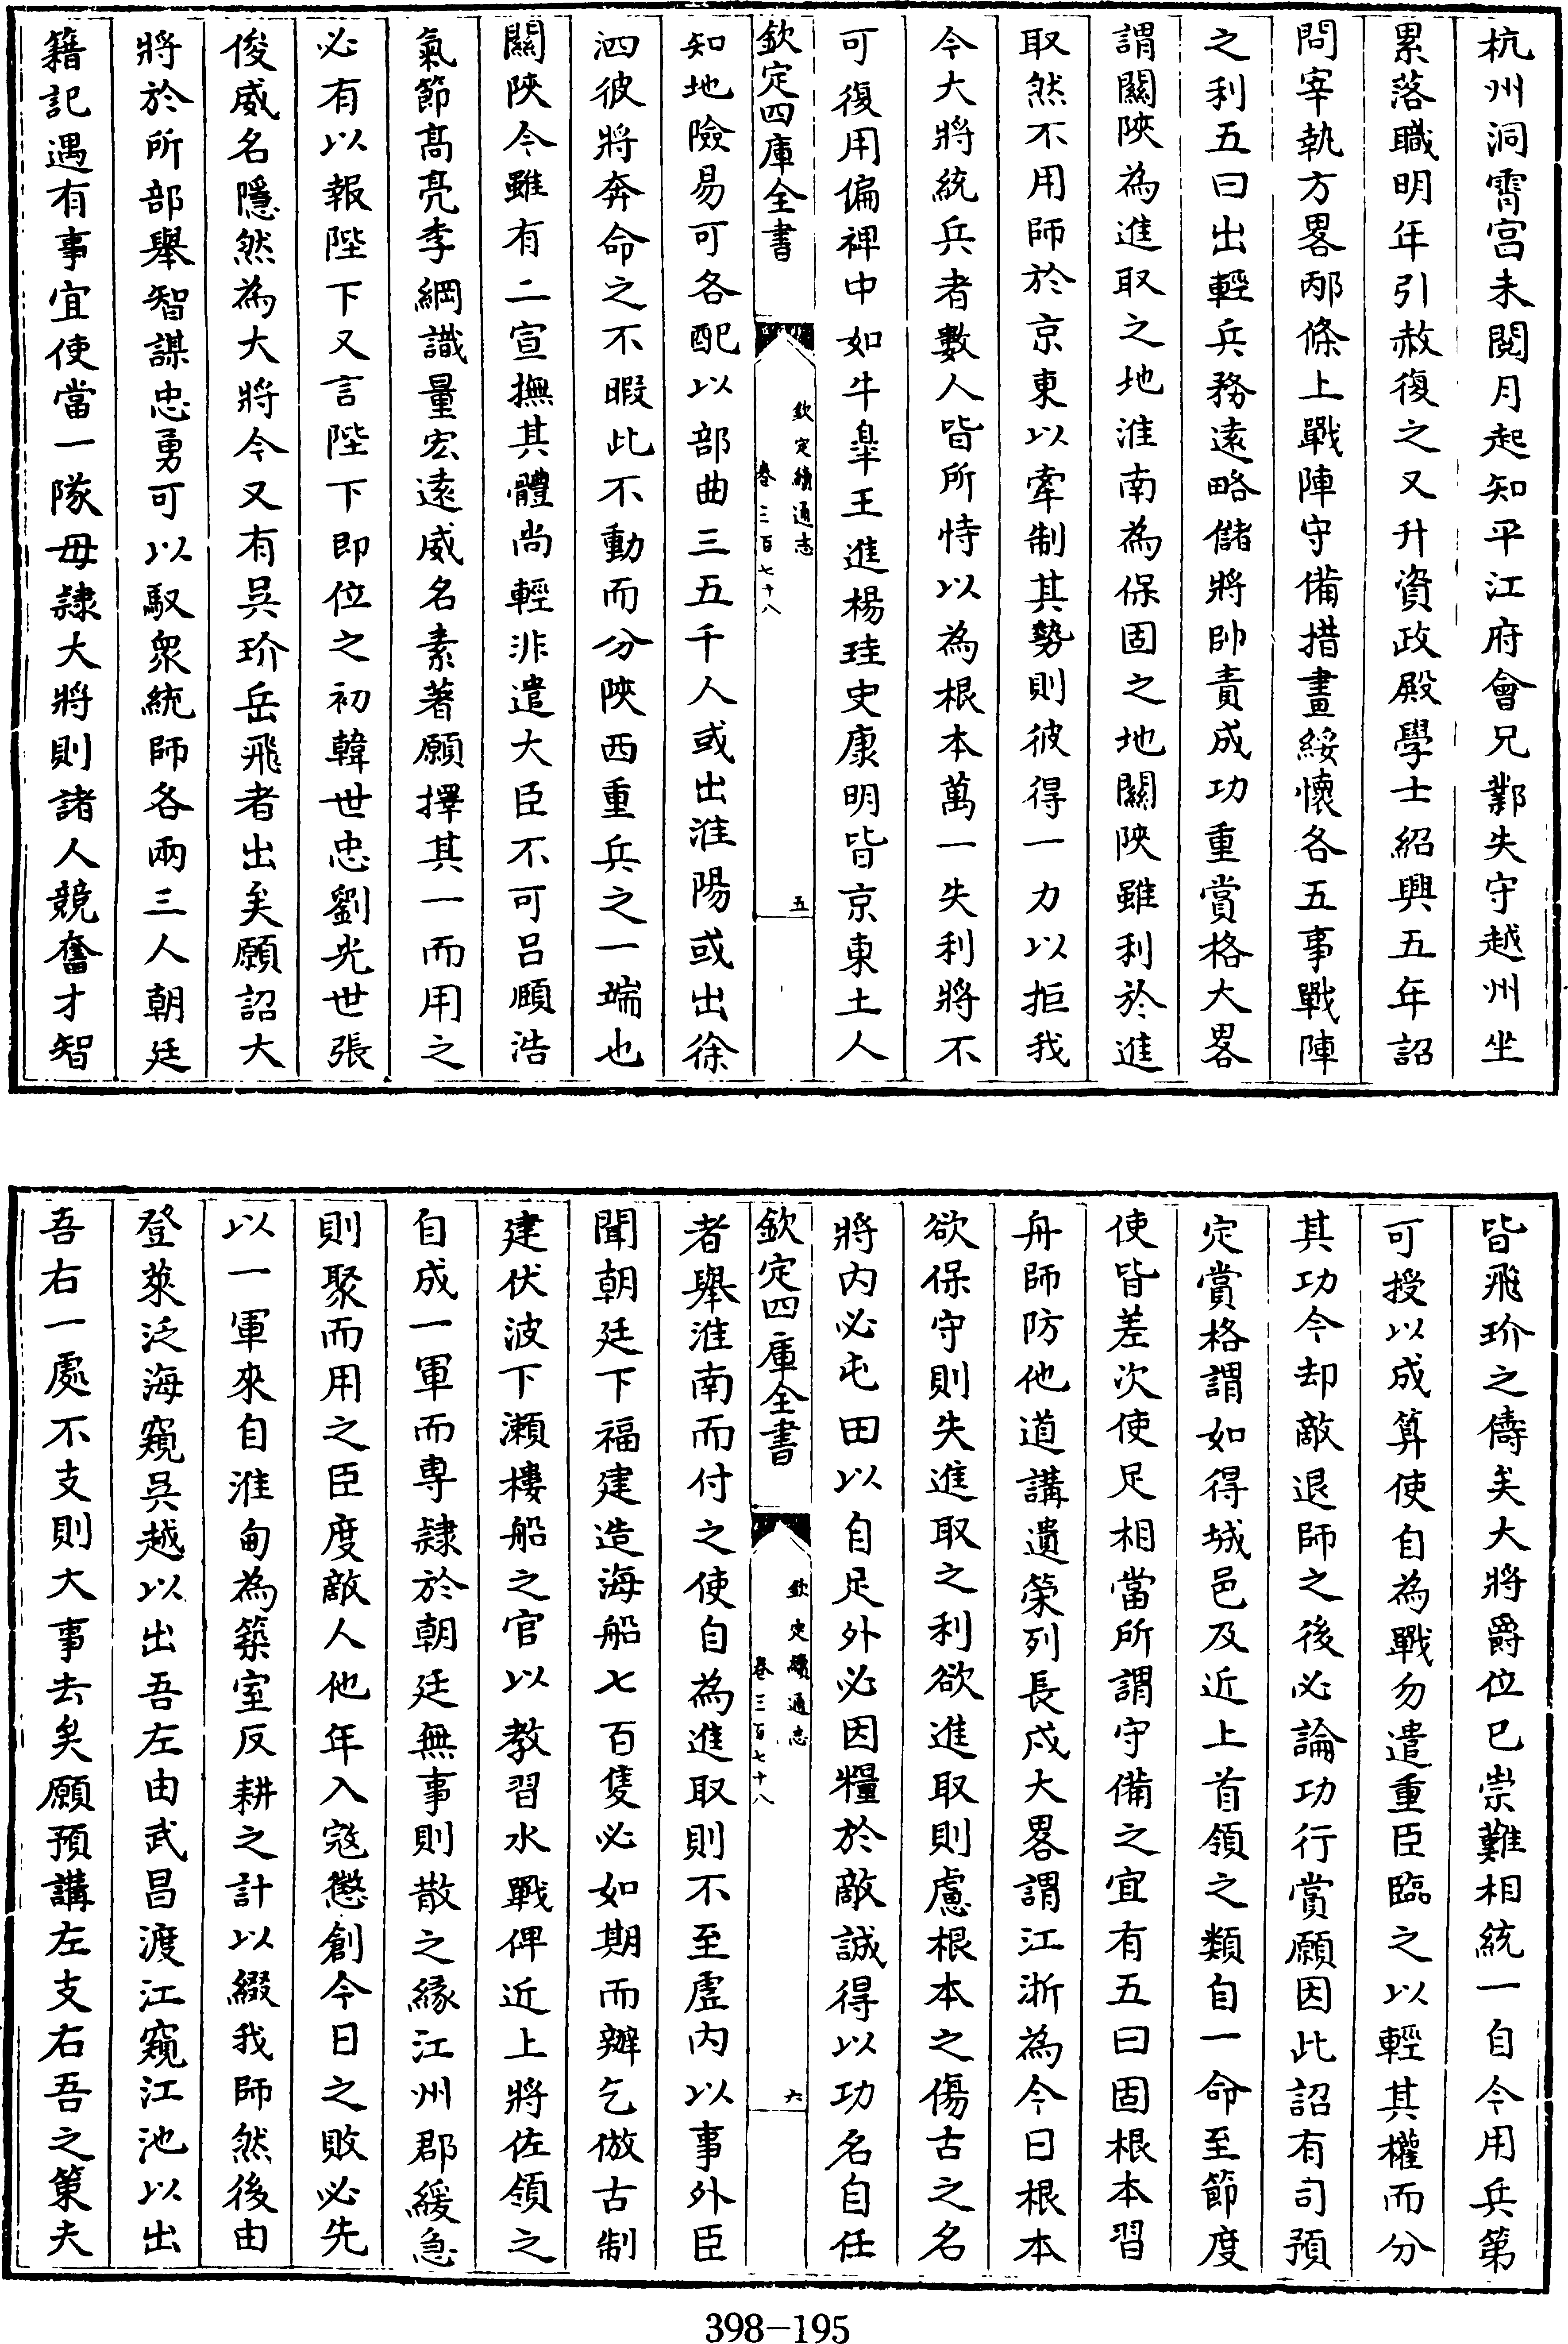 杭州洞霄宫未閱月起知平江府會兄鄴失守越州坐
累落職明年引赦復之又升資政殿學士紹興五年詔
問宰執方畧邴條上戰陣守備措畫綏懷各五事戰陣
之利五曰出輕兵務遠略儲將帥責成功重賞格大畧
謂關陜為進取之地淮南為保固之地關陜雖利於進
取然不用師於京東以牽制其勢則彼得一力以拒我
今大將統兵者數人皆所恃以為根本萬一失利將不
可復用偏禆中如牛臯王進楊珪史康明皆京東土人
欽定四庫全書
欽定續通志
卷三百七十八
五
知地險易可各配以部曲三五千人或出淮陽或出徐
泗彼將奔命之不暇此不動而分陜西重兵之一端也
關陜今雖有二宣撫其體尚輕非遣大臣不可吕頤浩
氣節高亮李綱識量宏遠威名素著願擇其一而用之
必有以報陛下又言陛下即位之初韓世忠劉光世張
俊威名隱然為大將今又有吳玠岳飛者出矣願詔大
將於所部舉智謀忠勇可以馭衆統師各兩三人朝廷
籍記遇有事宜使當一隊毋隷大將則諸人競奮才智
皆飛玠之儔矣大將爵位已崇難相統一自今用兵第
可授以成算使自為戰勿遣重臣臨之以輕其權而分
其功今却敵退師之後必論功行賞願因此詔有司預
定賞格謂如得城邑及近上首領之類自一命至節度
使皆差次使足相當所謂守備之宜有五曰固根本習
舟師防他道講遺策列長戍大畧謂江浙為今日根本
欲保守則失進取之利欲進取則慮根本之傷古之名
將内必屯田以自足外必因糧於敵誠得以功名自任
欽定四庫全書
欽定續通志
卷三百七十八
六
者舉淮南而付之使自為進取則不至虛内以事外臣
聞朝廷下福建造海船七百隻必如期而辦乞倣古制
建伏波下瀬樓船之官以教習水戰俾近上將佐領之
自成一軍而専隷於朝廷無事則散之緣江州郡緩急
則聚而用之臣度敵人他年入寇懲創今日之敗必先
以一軍來自淮甸為築室反耕之計以綴我師然後由
登萊泛海窺吳越以出吾左由武昌渡江窺江池以出
吾右一處不支則大事去矣願預講左支右吾之策夫
398-195